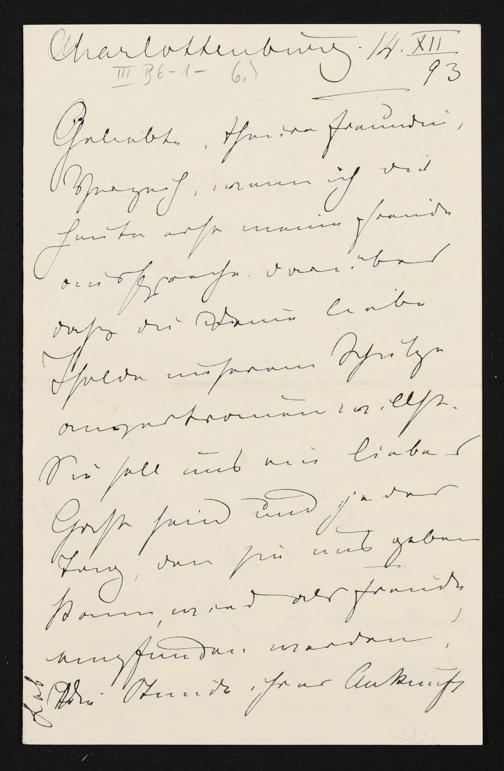 Charlottenburg. 14. XII
III B6-1- 6.)
93
Geliebte, theure Freundin,
Verzeih, wenn ich dir
heute erst meine Freude
ausspreche darüber
daß du Deine liebe
Isolde unserem Schutze
anvertrauen willst.
Sie soll uns ein lieber
Gast sein und jeder
Tag, den sie uns geben
kann, wird als Freude
empfunden werden,
Die Stunde ihrer Ankunft